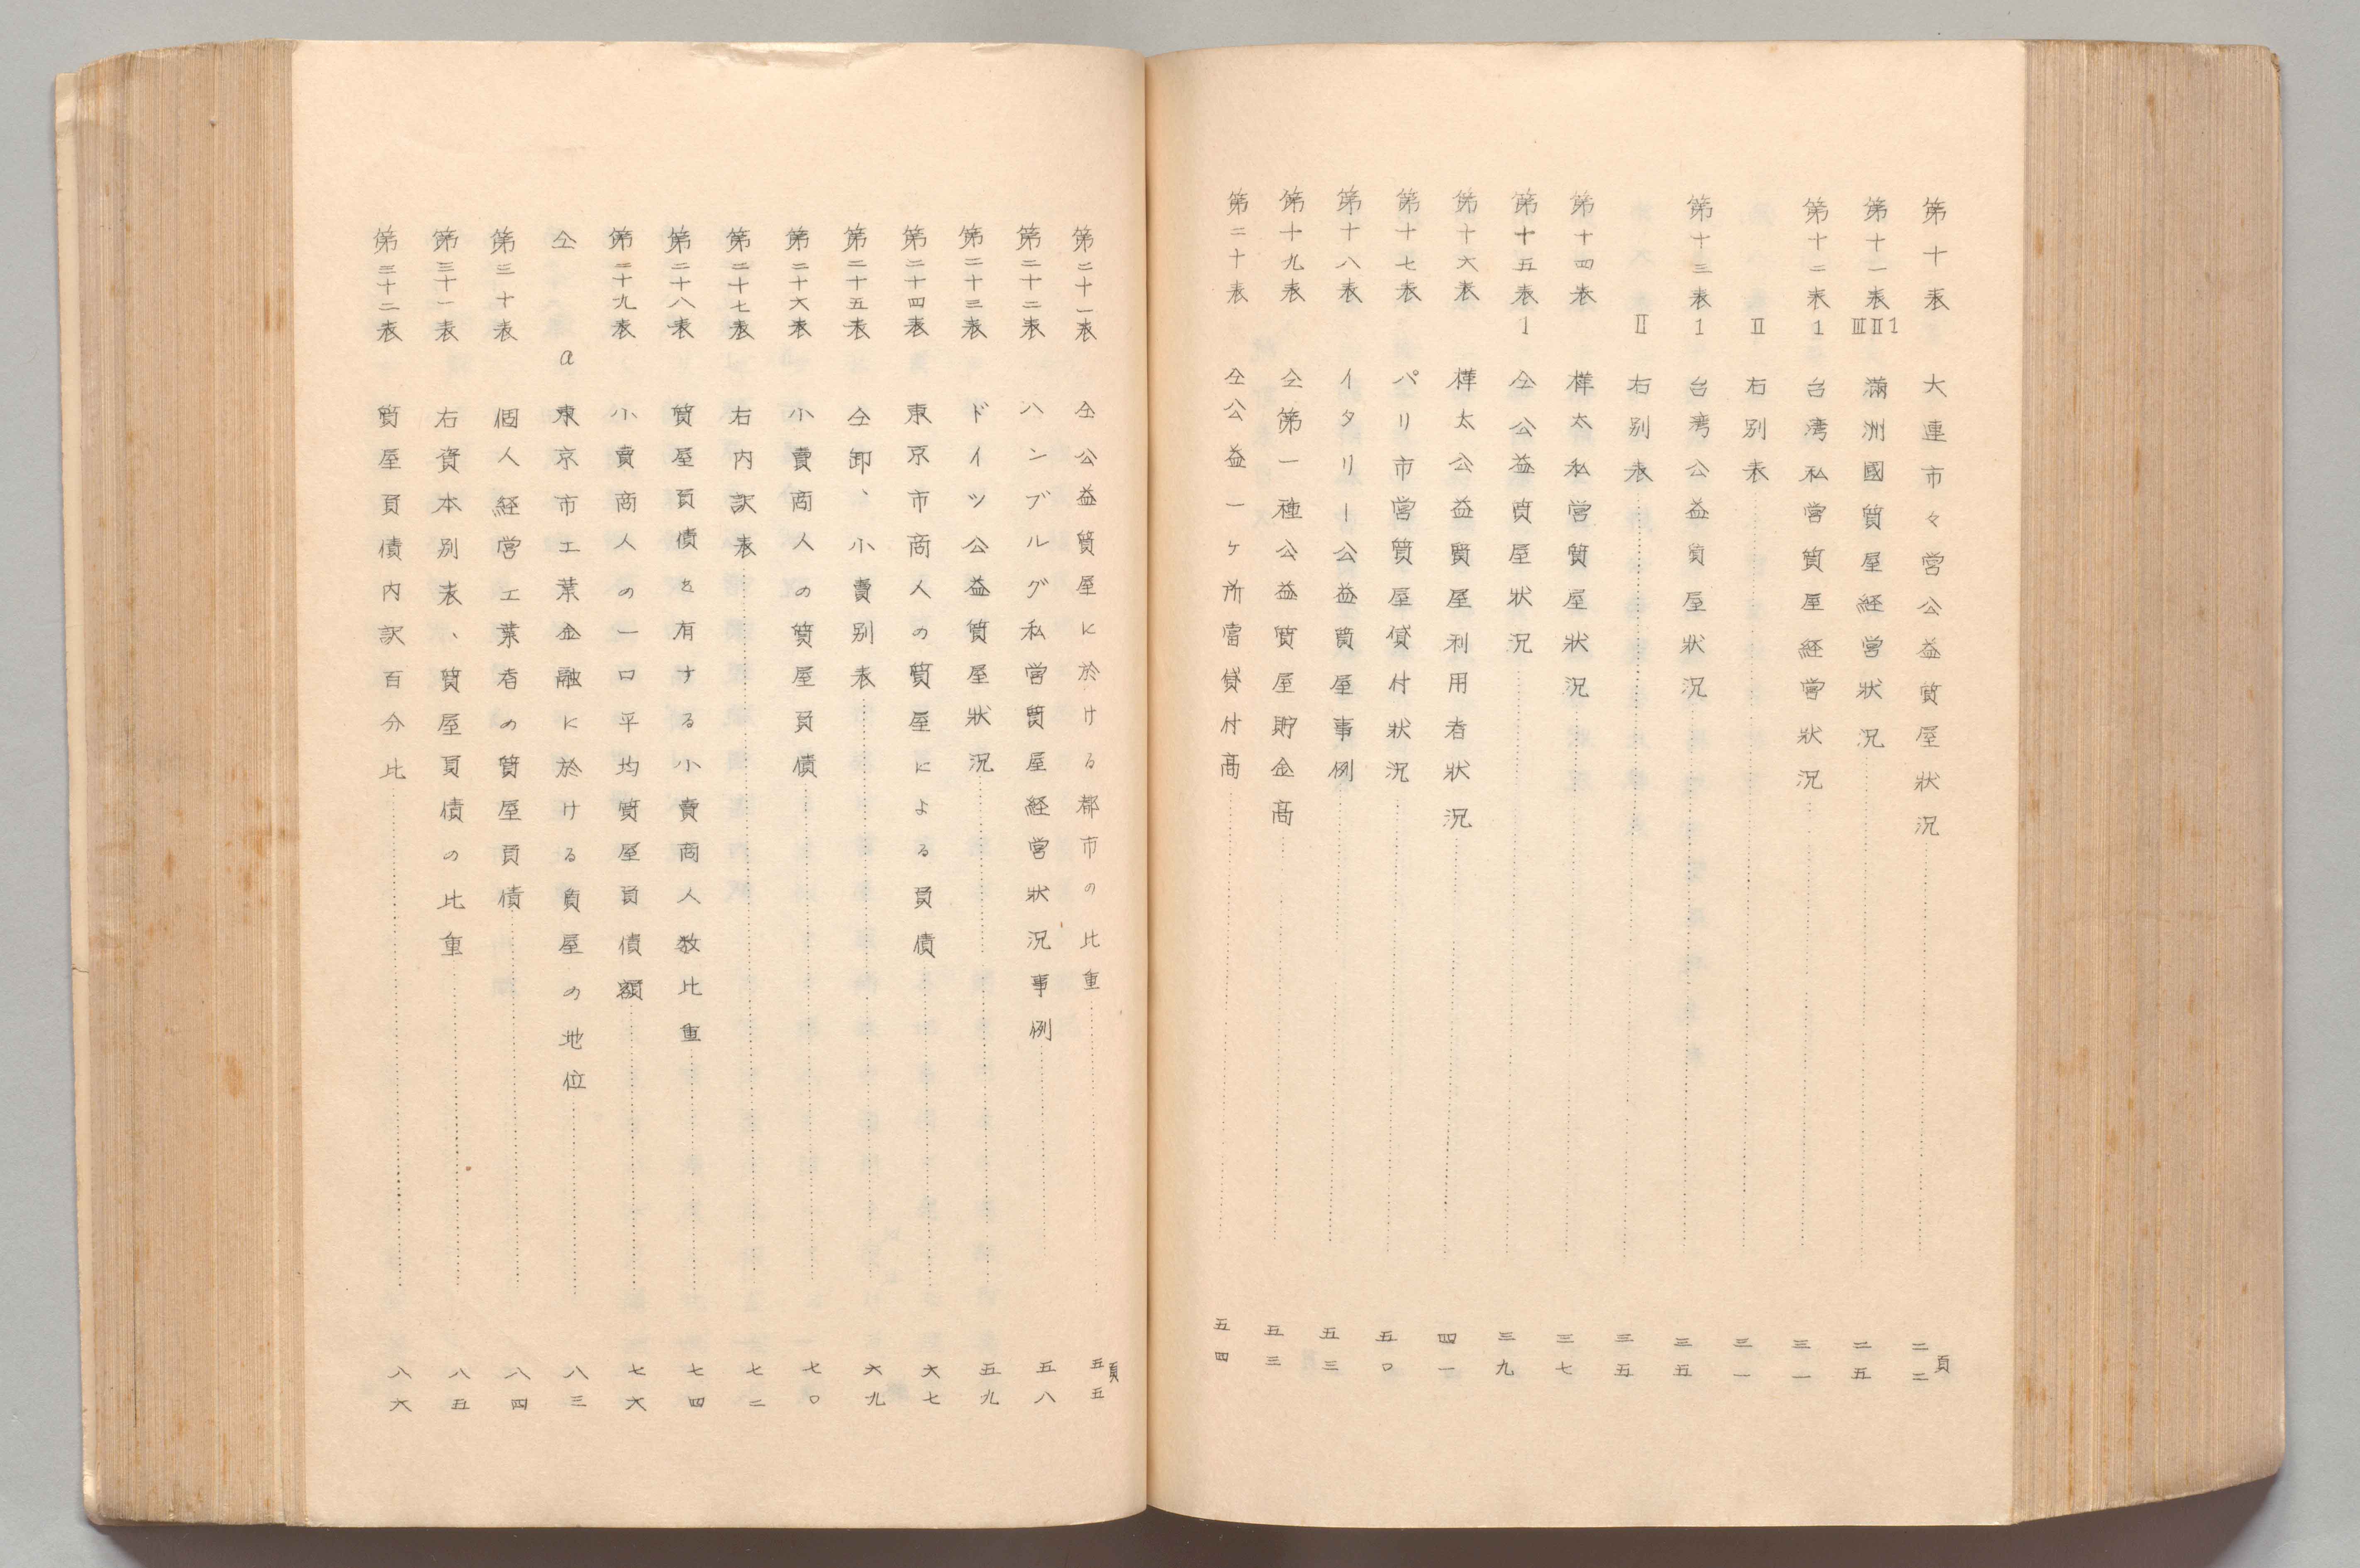 第十表 大連市々営公益質屋狀況……二二頁
第十一表ⅠⅡⅢ 滿洲國質屋経営狀況……二五
第十二表Ⅰ 台湾私営質屋経営狀況……三一
Ⅱ 右別表……三一
第十三表Ⅰ 台湾公益質屋狀況……三五
Ⅱ 右别表……三五
第十四表 樺太私営質屋狀況……三七
第十五表Ⅰ 仝公益質屋狀況……三九
第十六表 樺太公益質屋利用者狀況……四一
第十七表 パリ市営質屋貸付狀況……五〇
第十八表 イタリー公益質屋事例……五三
第十九表 仝第一種公益質屋貯金髙……五三
第二十表 仝公益一ヶ所當貸付髙……五四
第二十一表 仝公益質屋に於ける都市の比重……五五頁
第二十二表 ハンブルグ私営質屋経営狀況事例……五八
第二十三表 ドイツ公益質屋狀況……五九
第二十四表 東京市商人の質屋による負債……六七
第二十五表 仝卸、小賣别表……六九
第二十六表 小賣商人の質屋負債……七〇
第二十七表 右内訳表……七二
第二十八表 質屋負債を有する小賣商人数比重……七四
第二十九表 小賣商人の一口平均質屋負債額……七六
仝 a 東京市工業金融に於ける負屋の地位……八三
第三十表 個人経営工業者の質屋負債……八四
第三十一表 右資本別表、質屋負債の比重……八五
第三十二表 質屋負債内訳百分比……八六